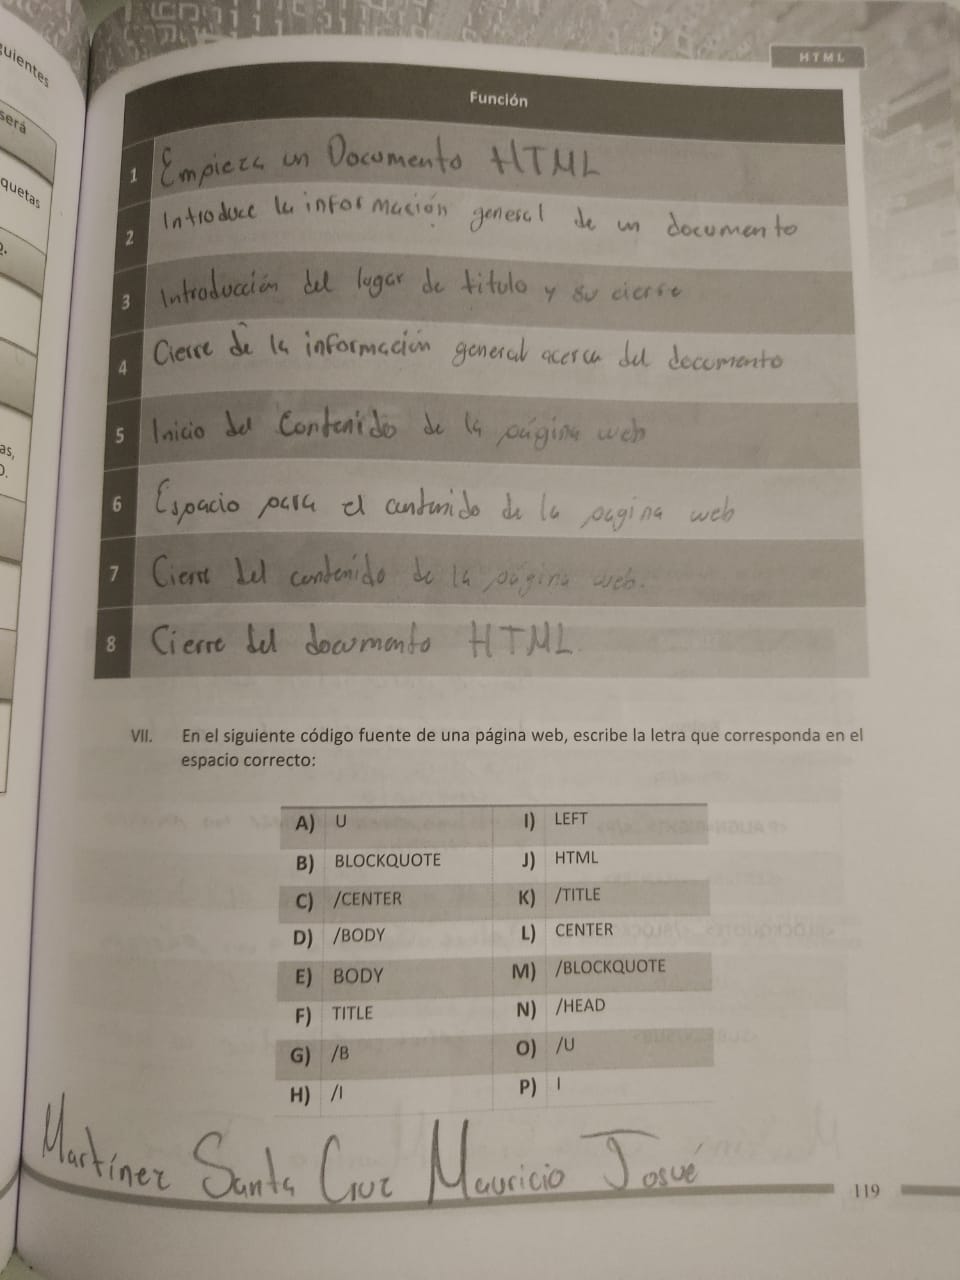 guientes
será
quetas
as,
HTML
Función
1 Empieza un Documento HTML
2 Introduce la información general de un documento
3 Introducción del lugar de titulo y su cierre
4 Cierre de la información general acerca del documento
5 Inicio del Contenido de la página web
6 Espacio para el contenido de la pagina web
7 Cierre del contenido de la página web.
8 Cierre del documento HTML.
VII. En el siguiente código fuente de una página web, escribe la letra que corresponda en el
espacio correcto:
A) U I) LEFT
B) BLOCKQUOTE J) HTML
C) /CENTER K) /TITLE
D) /BODY L) CENTER
E) BODY M) /BLOCKQUOTE
F) TITLE N) /HEAD
G) /B O) /U
H) /I P) I
Martínez Santa Cruz Mauricio Josué
119